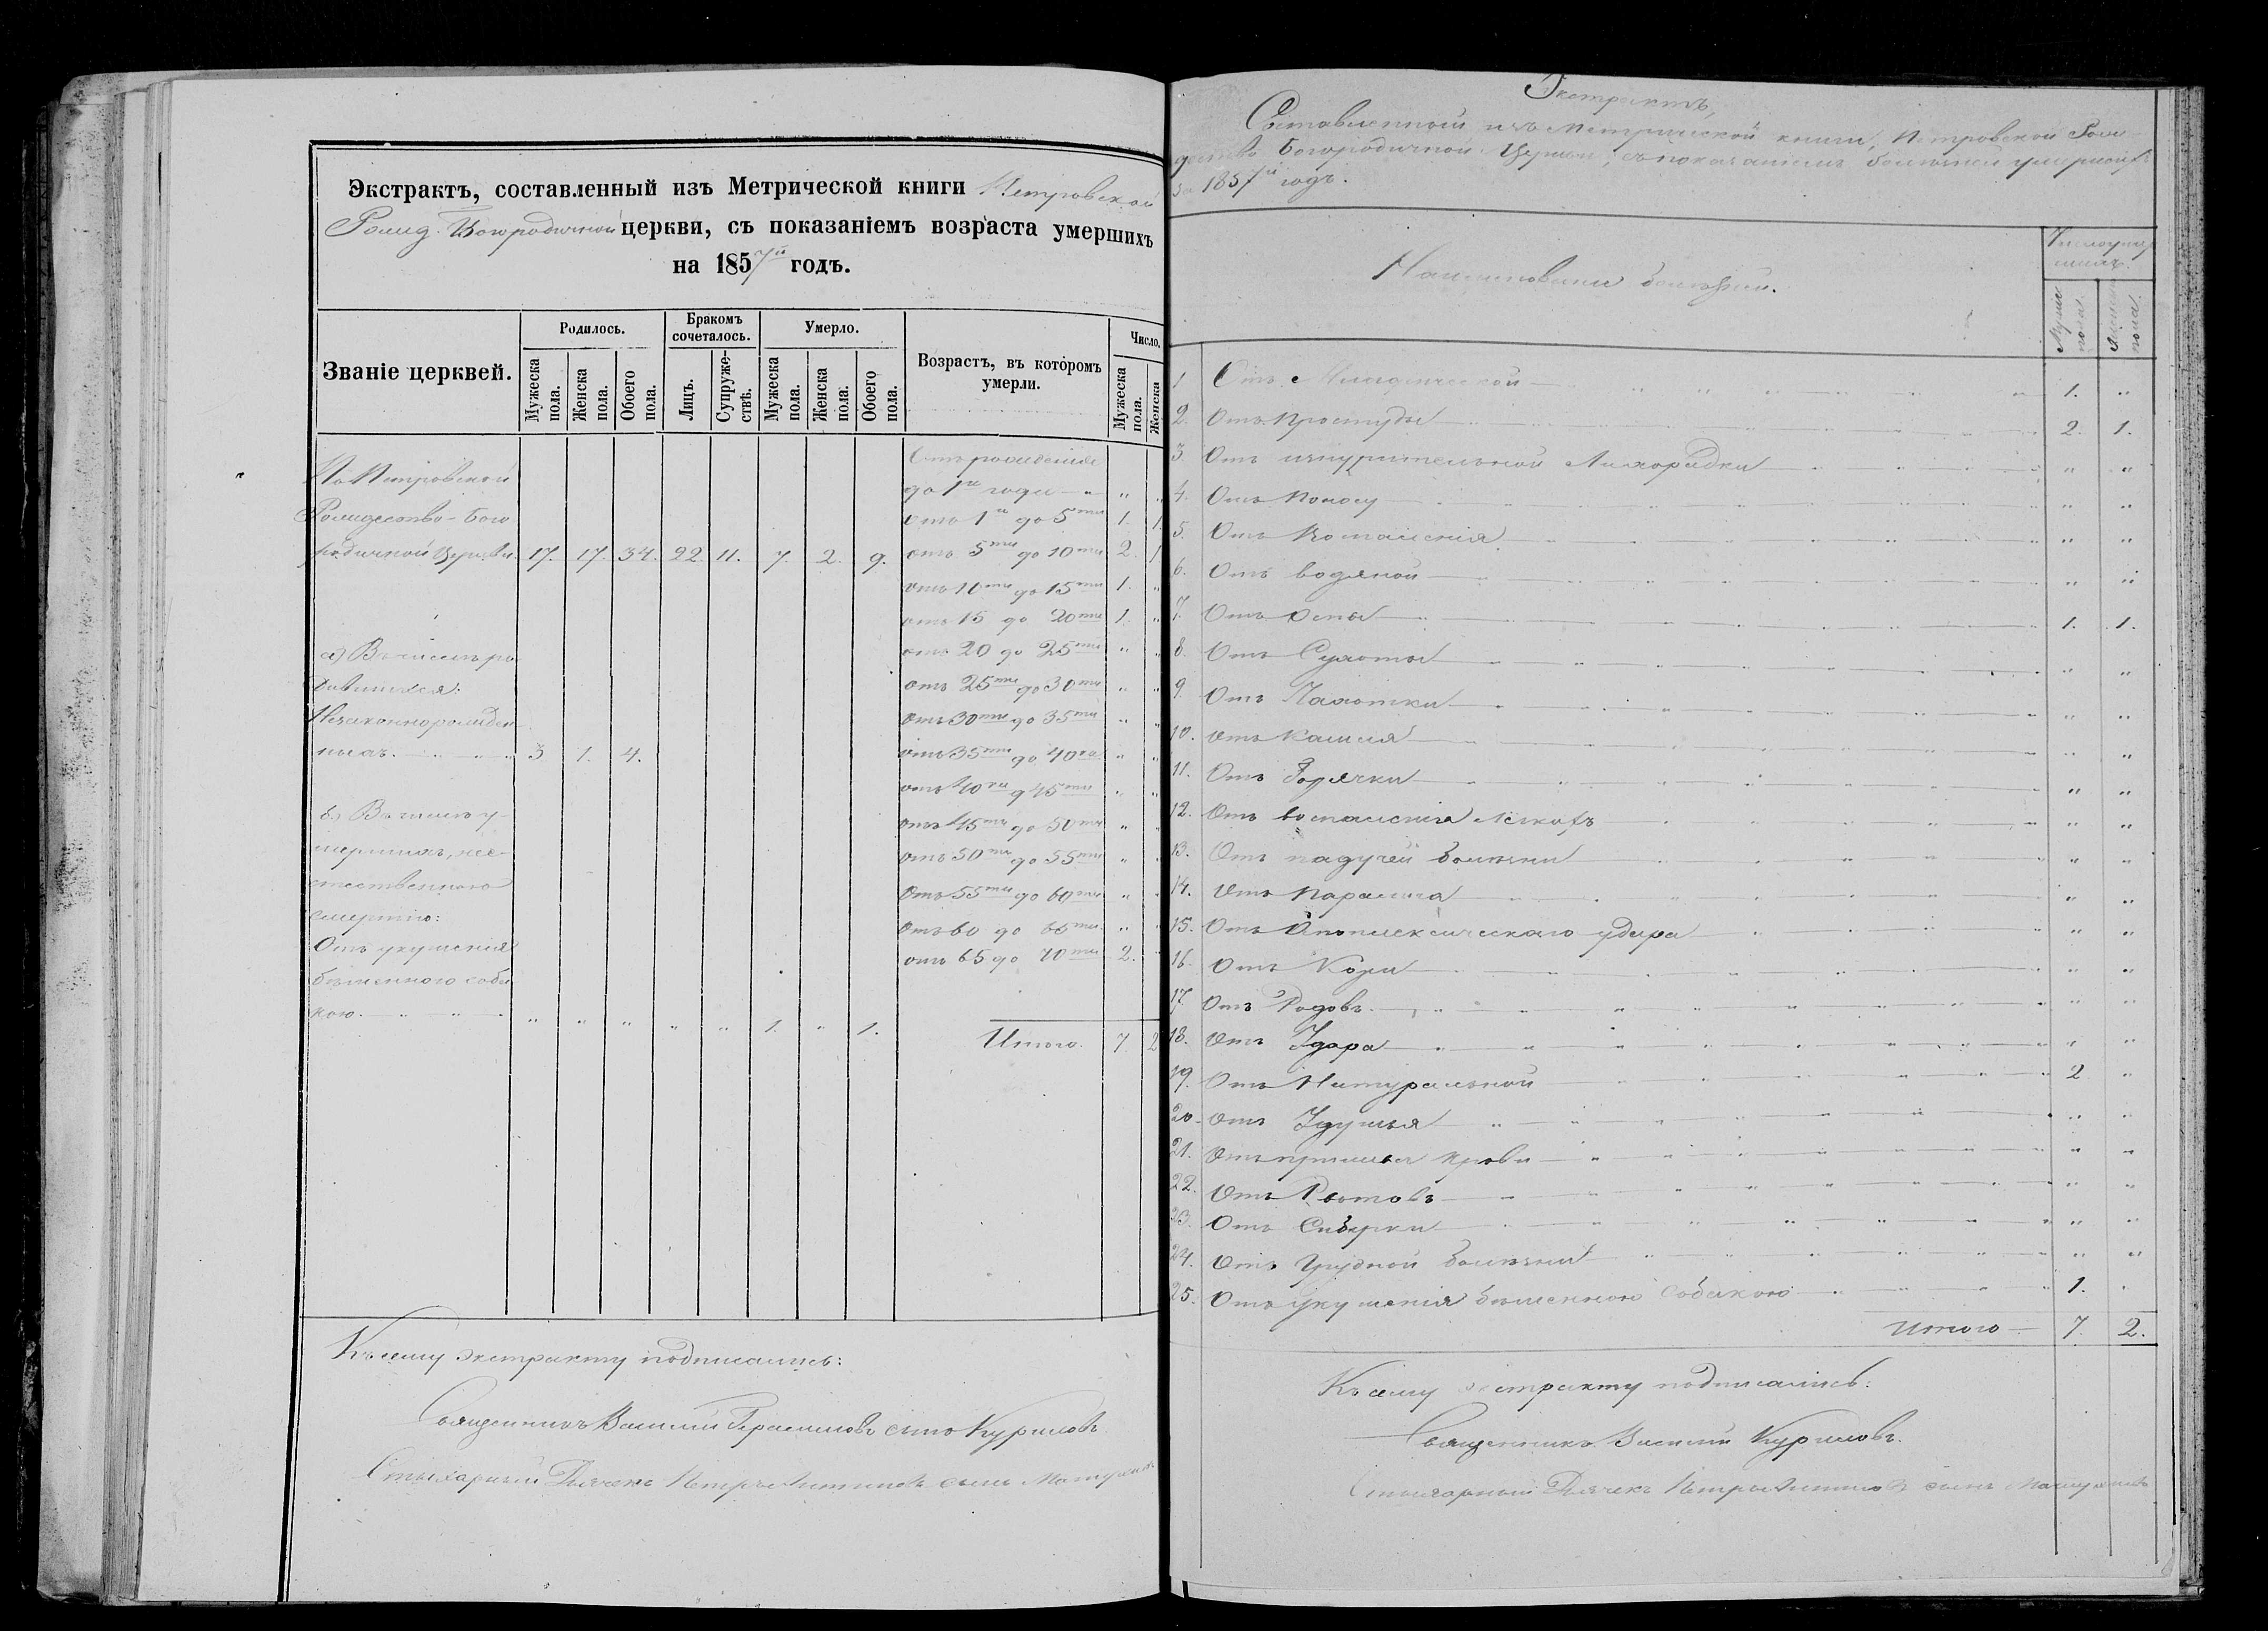 Экстрактъ, составленный изъ Метрической книги Петровской
Рожд. Богородичной церкви, съ показаніемъ возраста умершихъ
на 1857й годъ.
Званіе церквей.
Родилось.
Бракомъ сочеталось.
Умерло.
Возрастъ, въ которомъ умерли.
Число.
Мужеска пола.
Женска пола.
Обоего пола.
Лицъ.
Супружествъ.
Мужеска пола.
Женска пола.
Обоего пола.
Мужеска пола.
Женска
По Петровской
Рождество-Бого
родичной Церкви. 17. 17. 34. 22. 11. 7. 2. 9.
а) Въ числѣ ро
дившихся:
Незаконнорожден
ныхъ. 3 1. 4.
б) Въ числѣ у-
мершихъ, неес-
тественною
смертію:
Отъ укушенія
бѣшенною соба
кою. " " " " " 1. " 1.
Отъ рожденія
до 1го года " "
отъ 1го до 5ти 1. 1.
отъ 5ти до 10ти 2. 1
отъ 10ти до 15ти 1. "
отъ 15 до 20ти 1. "
отъ 20 до 25ти " "
отъ 25ти до 30ти " "
отъ 30ти до 35ти " "
отъ 35ти до 40ка " "
отъ 40ка д 45ти " "
отъ 45ти до 50ти " "
отъ 50ти до 55ти " "
отъ 55ти до 60ти " "
отъ 60 до 65ти " "
отъ 65 до 70ти 2. "
Итого. 7 2
Къ сему экстракту подписались:
Священникъ Василій Герасимовъ сынъ Куриловъ
Стихарный Дьячекъ Петръ сынъ
Экстрактъ,
Составленный изъ Метрической книги, Петровской Рож
дество Богородичной Церкви съ показаніемъ болѣзней умершихъ
за 1857й годъ.
Наименованіе болѣзней.
Число умер
шихъ.
Мужес пола.
Женска пола.
1 Отъ Младенческой 1. "
2. Отъ простуды 2. 1.
3. Отъ изнурительной Лихорадки " "
4. Отъ Поносу " "
5. Отъ Воспаленія " "
6. Отъ водяной " "
7. Отъ Оспы 1. 1.
8. Отъ Сухоты " "
9. Отъ Чахотки " "
10. Отъ Кашля " "
11. Отъ Горячки " "
12. Отъ воспаленія Легкихъ " "
13. Отъ падучей болѣзни " "
14. Отъ Паралича " "
15. Отъ Апоплексическаго удара " "
16. Отъ Кори " "
17. Отъ Родовъ " "
18. Отъ Удара " "
19. Отъ Натуральной 2 "
20. Отъ Удушья " "
21. Отъ прилива Крови " "
22. Отъ " "
23. Отъ " "
24. Отъ Грудной болѣзни " "
25. Отъ укушенія бѣшенною Собакою 1. "
Итого 7. 2.
Къ сему экстракту подписались:
Священникъ Василій Куриловъ.
Стихарный Дьячекъ Петръ сынъ